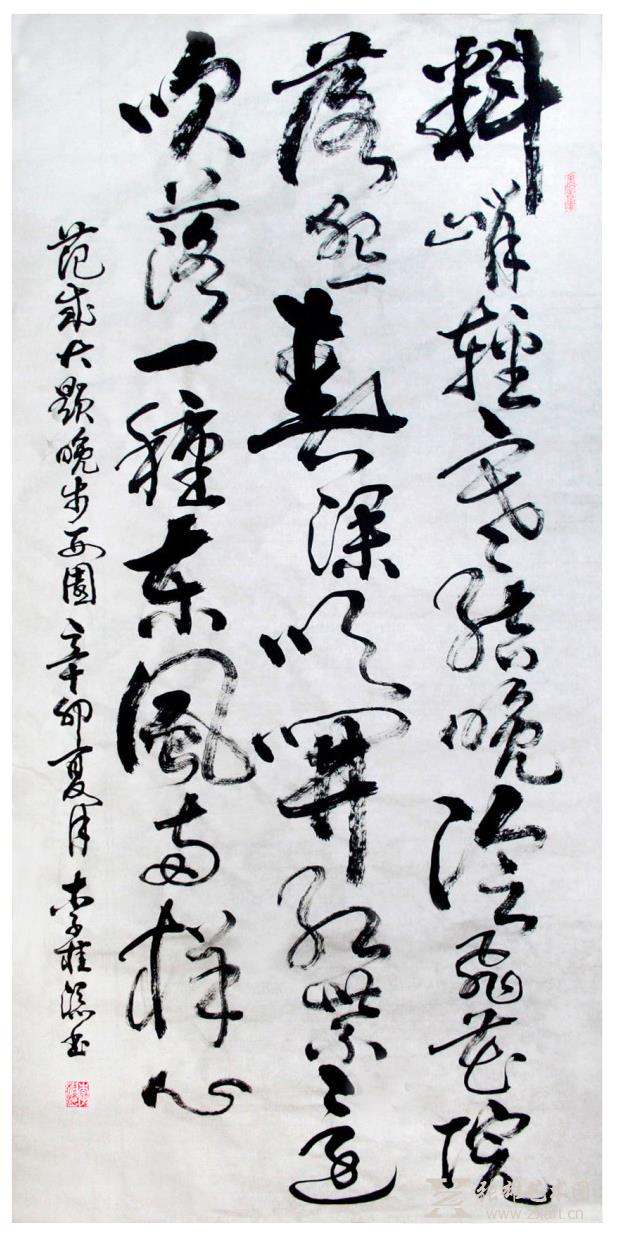 料峭輕寒結晚陰飛花院
落怨春深吹開紅紫還
吹落一種東風兩樣心
范成大題晚步西園 辛卯夏月 李桂書
www.zxart.cn